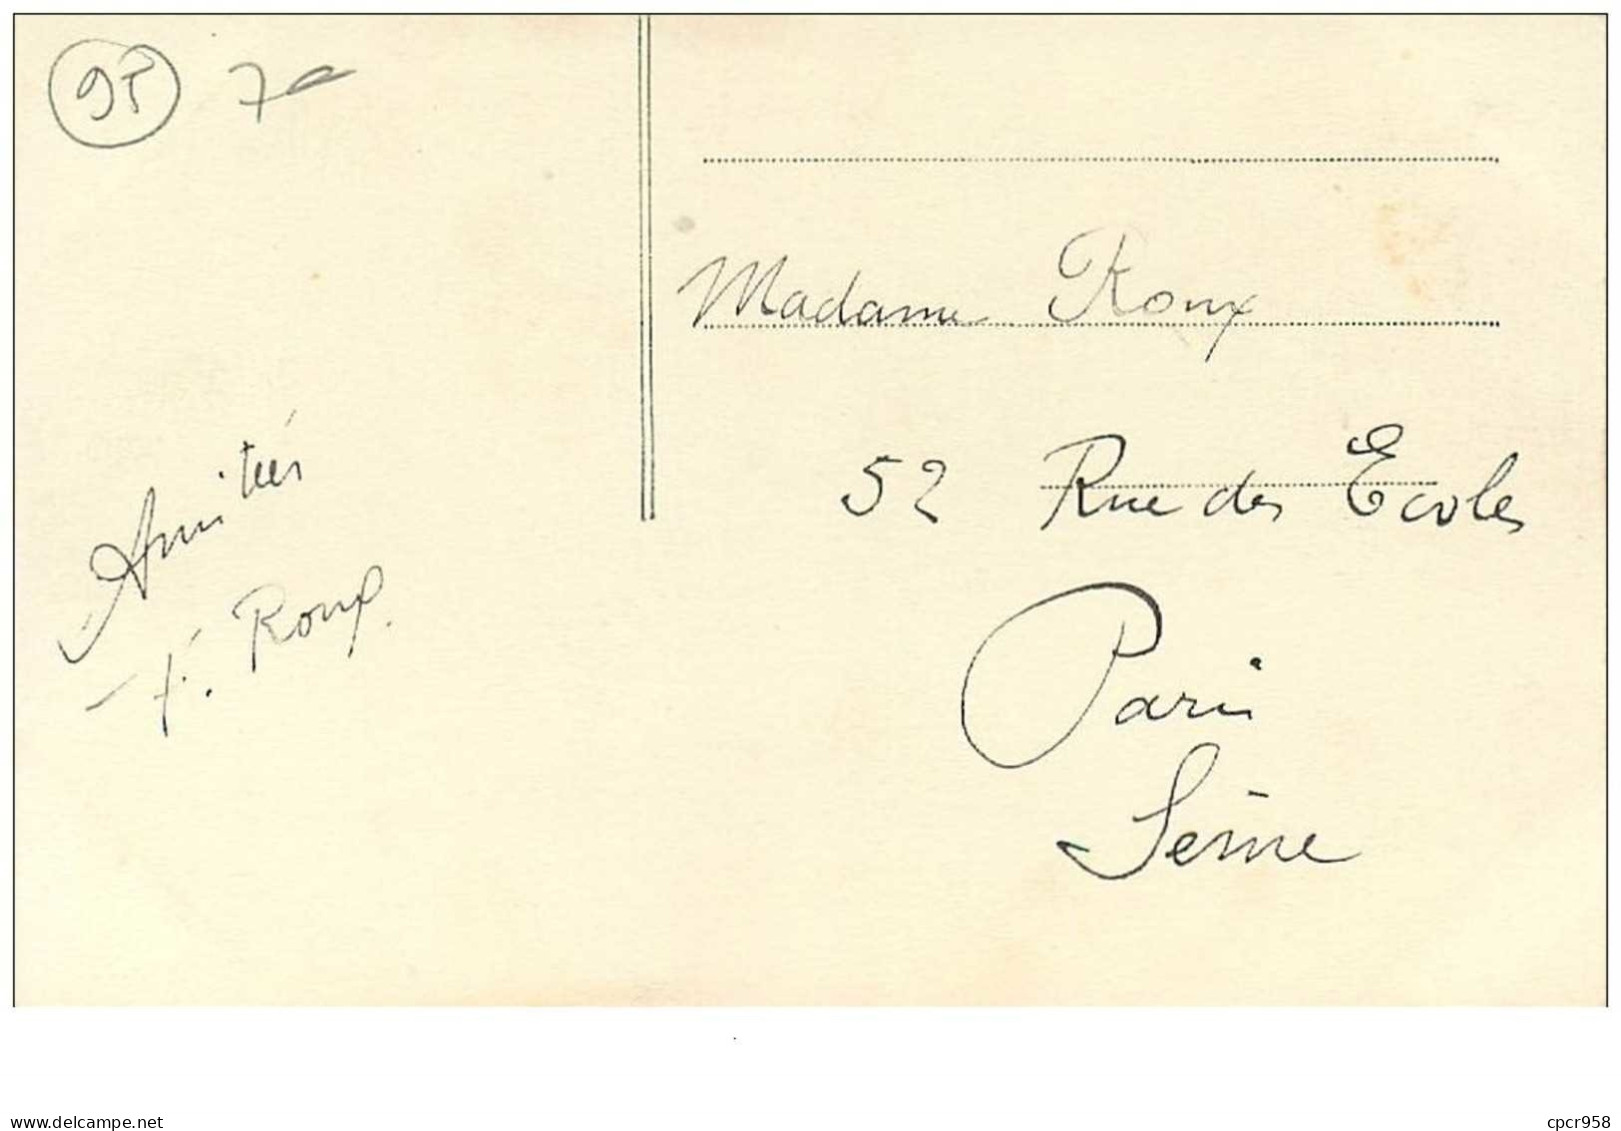 95 7
Amitiés
F. Roux.
Madame Roux
52 Rue des Ecoles
Paris
Seine
www.delcampe.net
cpcr958